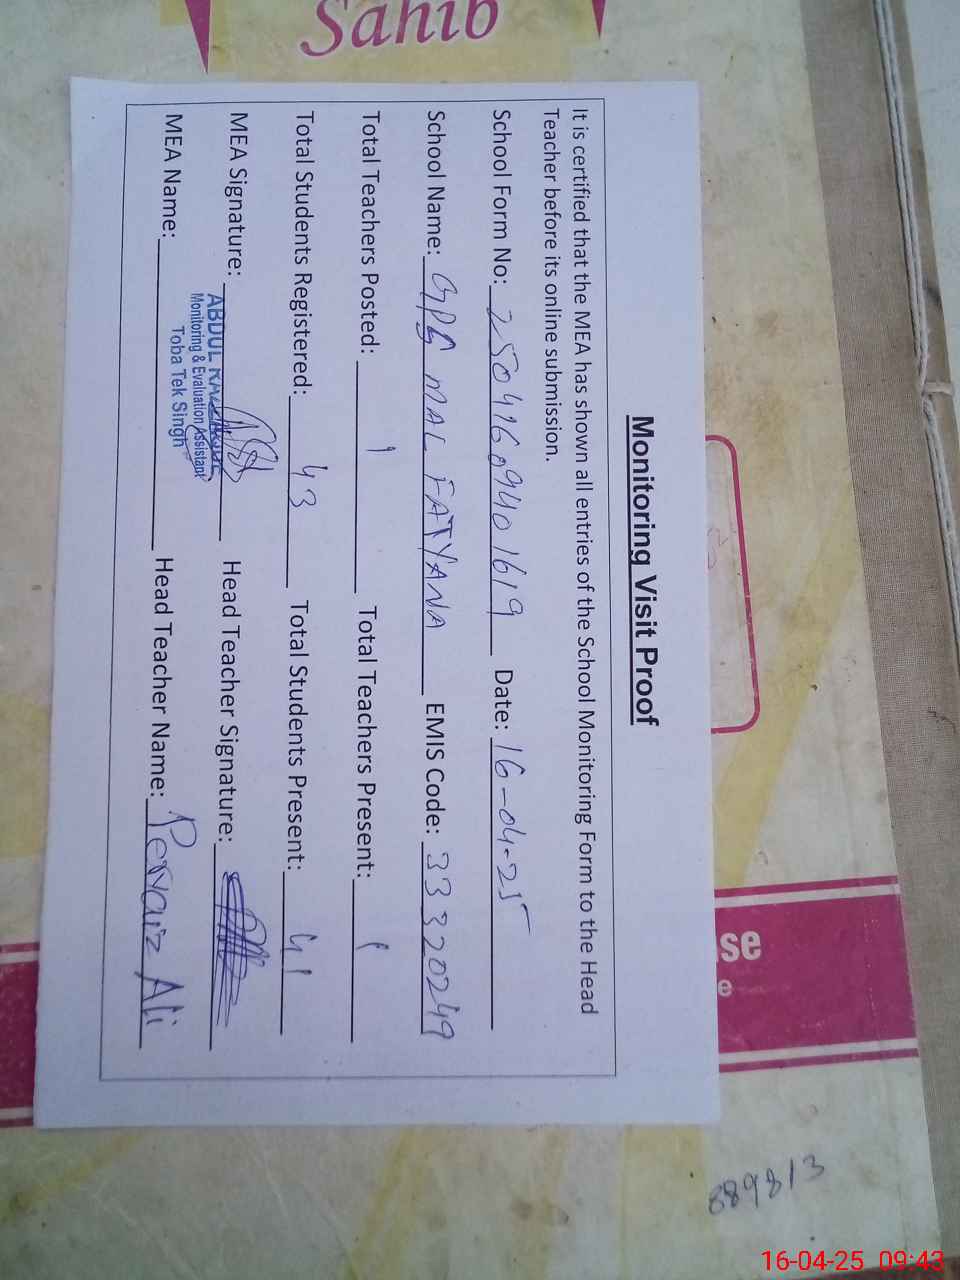 Sahib
Monitoring Visit Proof
It is certified that the MEA has shown all entries of the School Monitoring Form to the Head
Teacher before its online submission.
School Form No: 25041609401619 Date: 16-04-25
School Name: GPS MAL FATYANA EMIS Code: 33320249
Total Teachers Posted: 1 Total Teachers Present: 1
Total Students Registered: 43 Total Students Present: 41
MEA Signature: Head Teacher Signature:
ABDUL
Monitoring & Evaluation Assistant
Toba Tek Singh
MEA Name: Head Teacher Name: Pervaiz Ali
se
e
889813
16-04-25 09:43